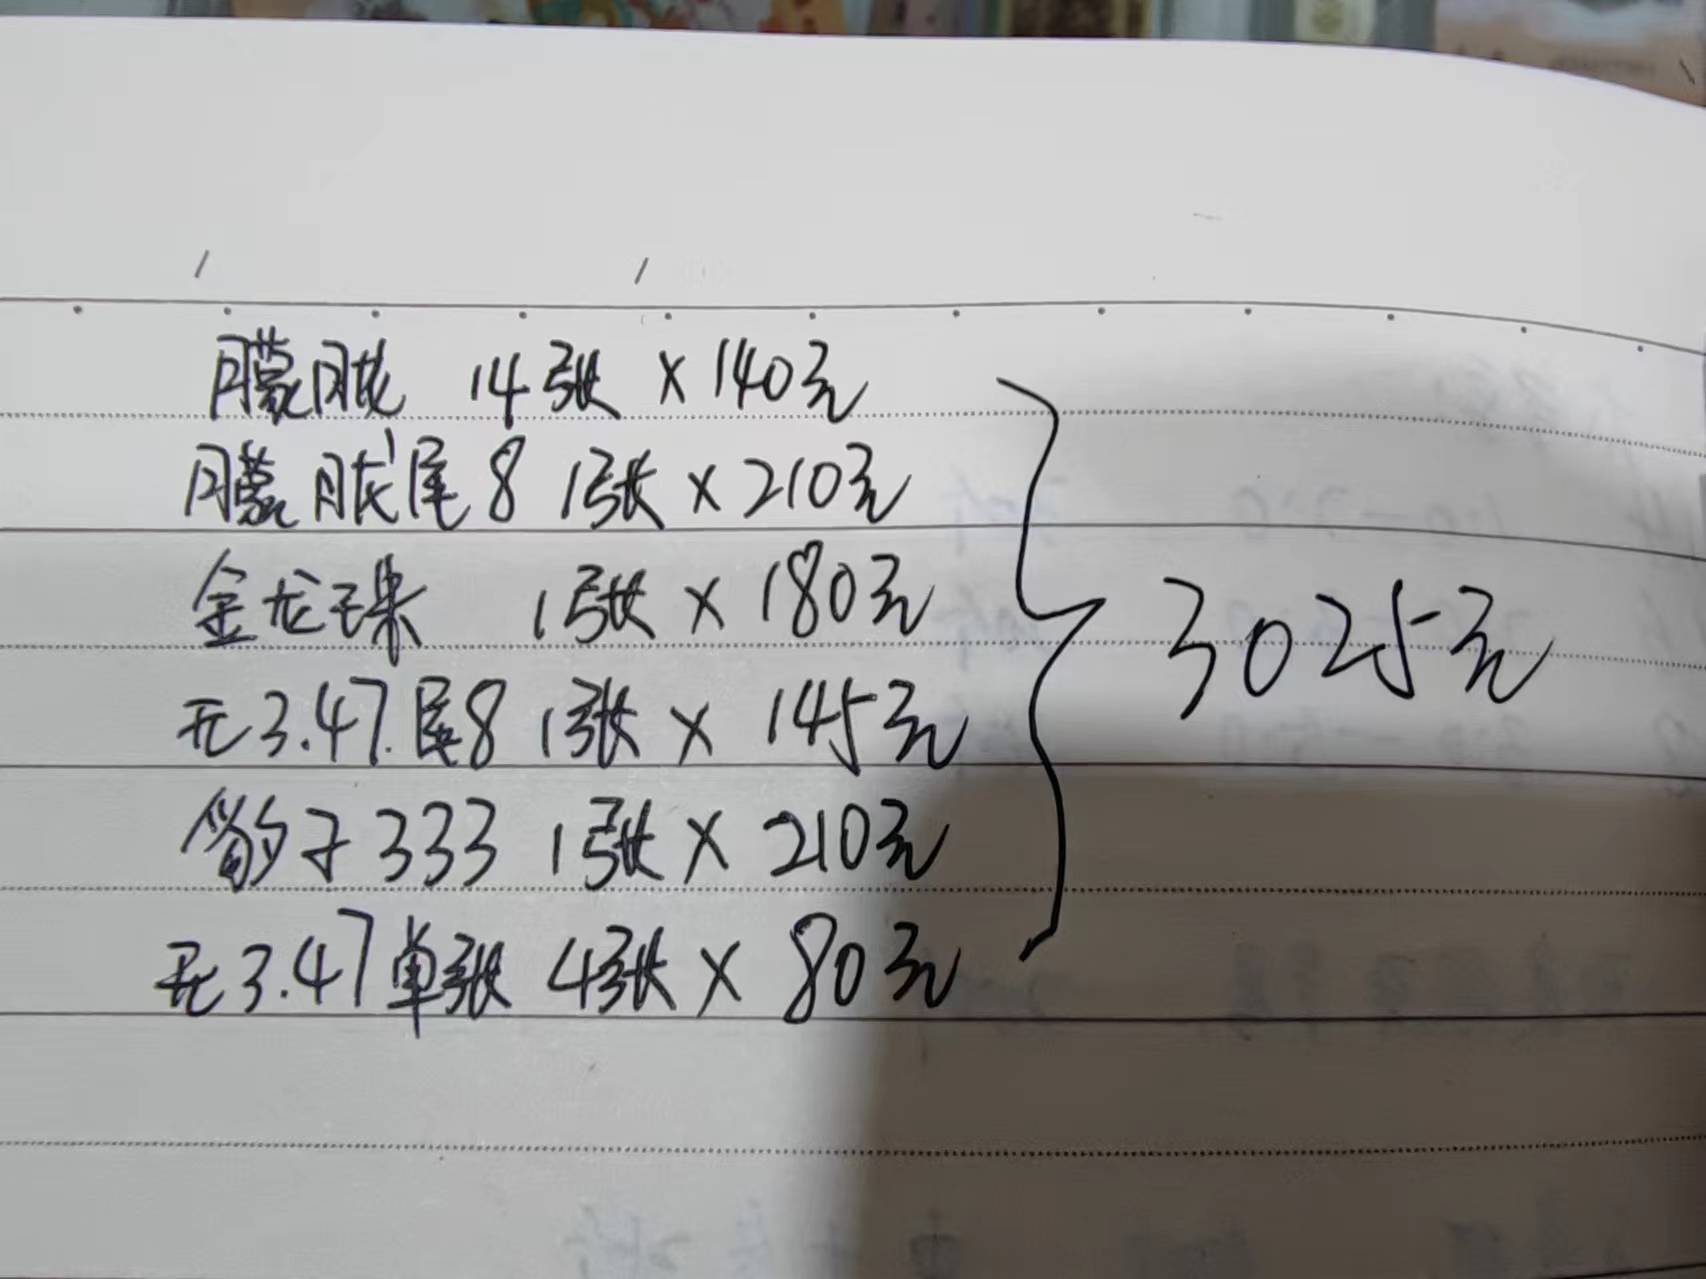 朦胧 14张 × 140元
朦胧尾8 1张 × 210元
金龙珠 1张 × 180元
无3.47.尾8 1张 × 145元
豹子333 1张 × 210元
无3.47单张 4张 × 80元
3025元